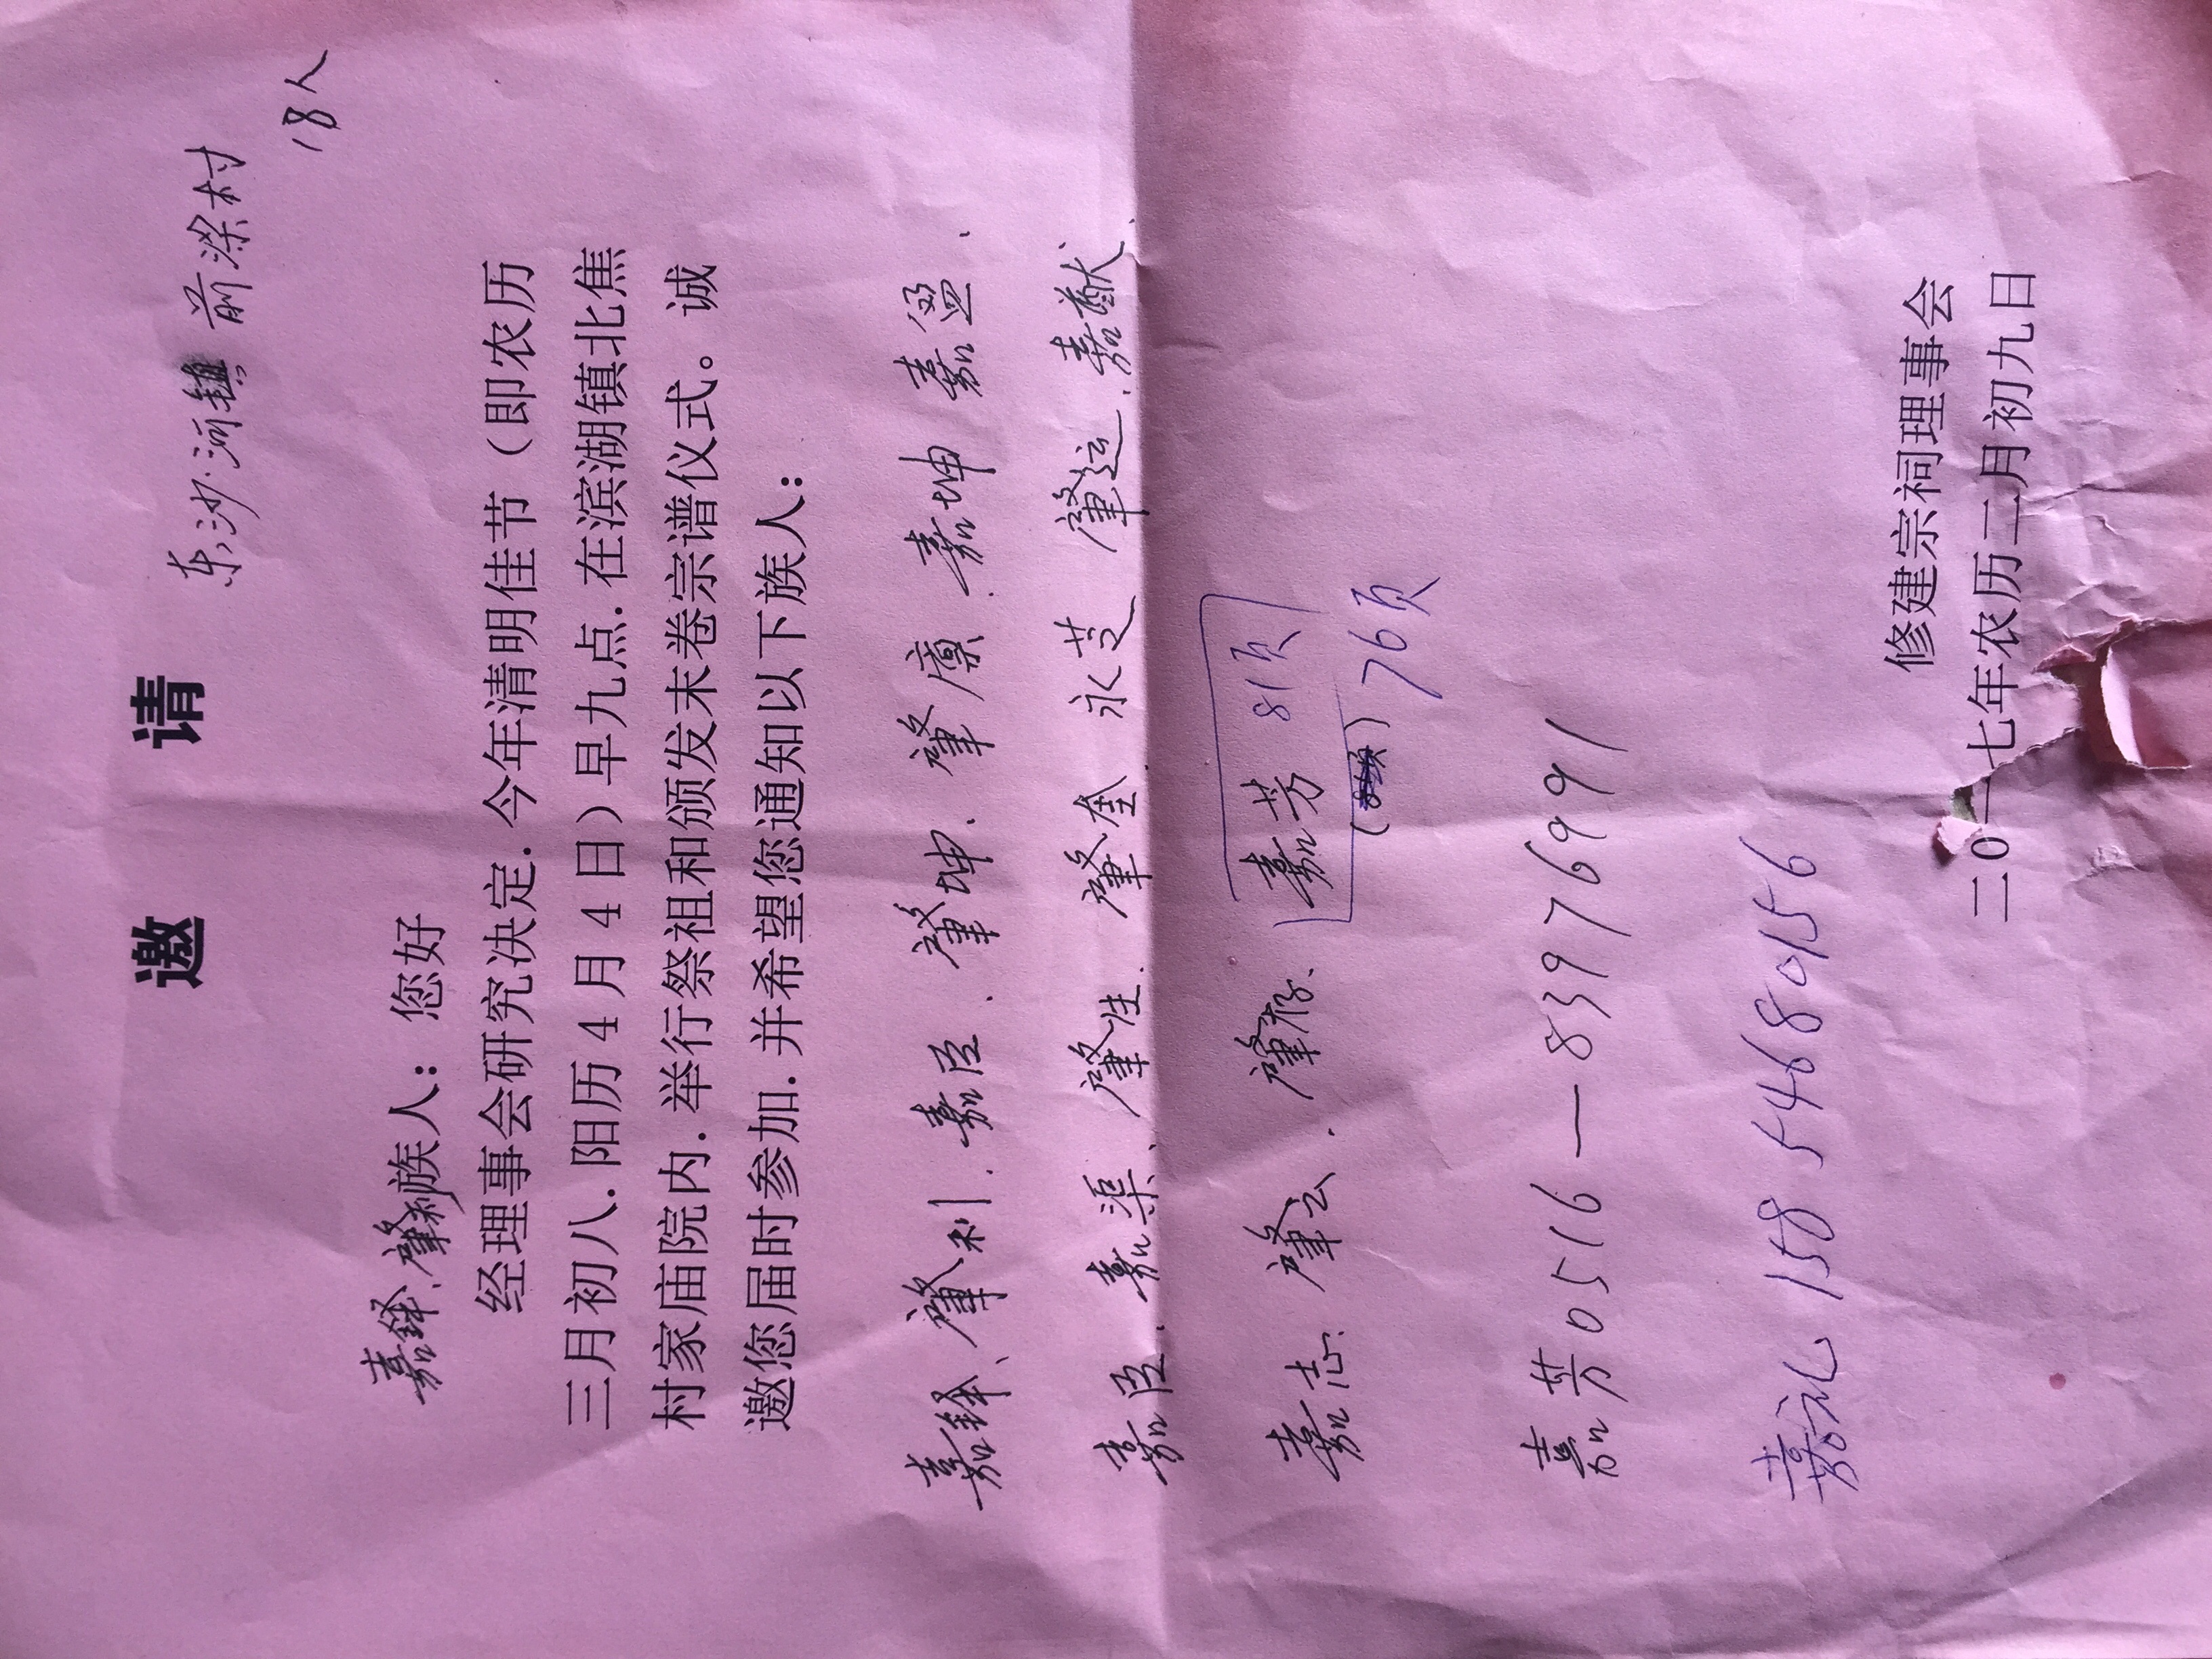 邀 请
东沙河镇 前梁村
18人
嘉铎、肇利族人：您好
经理事会研究决定.今年清明佳节（即农历
三月初八.阳历4月4日）早九点.在滨湖镇北焦
村家庙院内.举行祭祖和颁发末卷宗谱仪式。诚
邀您届时参加.并希望您通知以下族人：
嘉铎、肇利.嘉臣.肇坤.肇廪.嘉坤 嘉盈.
嘉臣.嘉渠、肇生.肇奎.永芝 肇运.嘉猷.
嘉志.肇云.肇存.嘉芳 81页
( ) 76页
嘉芳0516—83976991
嘉礼 15854680156
修建宗祠理事会
二0一七年农历二月初九日